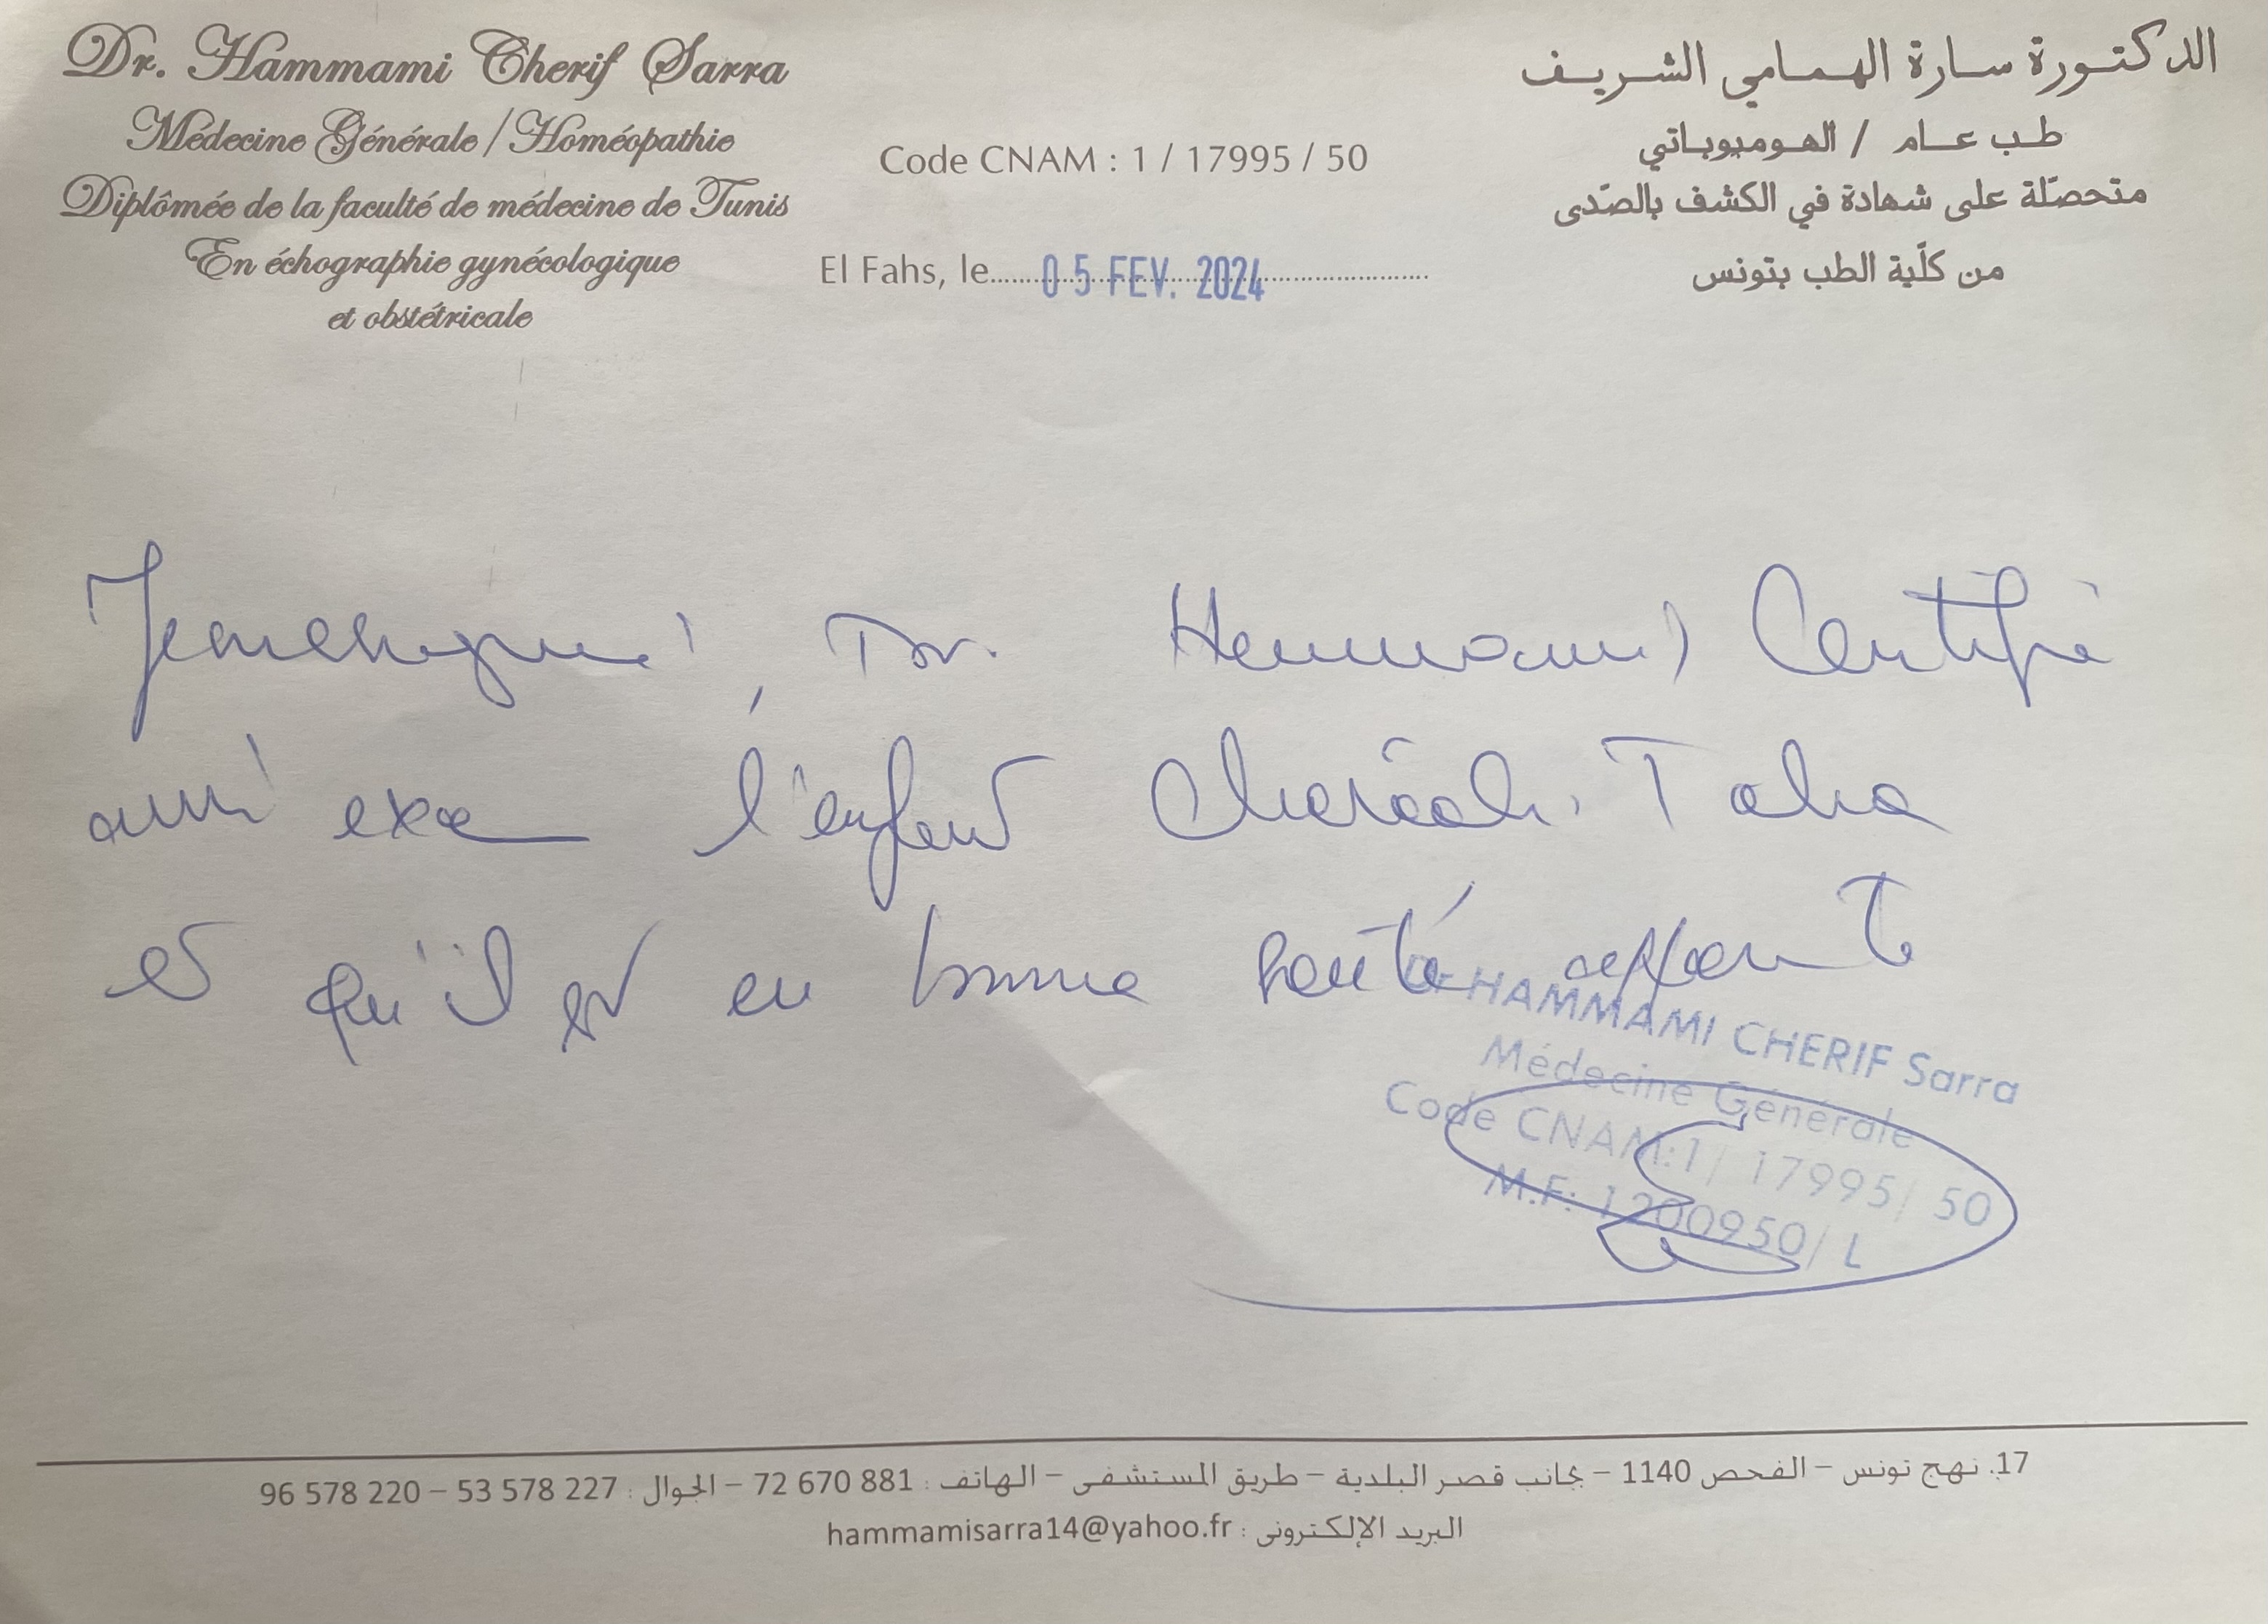 Dr. Hammami Cherif Sarra
Médecine Générale / Homéopathie
Diplômée de la faculté de médecine de Tunis
En échographie gynécologique
et obstétricale
Code CNAM : 1 / 17995 / 50
El Fahs, le 05 FEV. 2024
الدكتورة سارة الهمامي الشريف
طب عام / الهوميوباتي
متحصّلة على شهادة في الكشف بالصّدى
من كلّية الطب بتونس
Dr. Hammami Certifie
l'enfant Taha
et qu'il est en bonne santé apparente
Dr HAMMAMI CHERIF Sarra
Médecine Générale
Code CNAM:1/ 17995/ 50
M.F: 1200950/ L
17. نهج تونس – الفحص 1140 – بجانب قصر البلدية – طريق المستشفى – الهاتف : 881 670 72 – الجوال : 227 578 53 – 220 578 96
البريد الإلكتروني : hammamisarra14@yahoo.fr